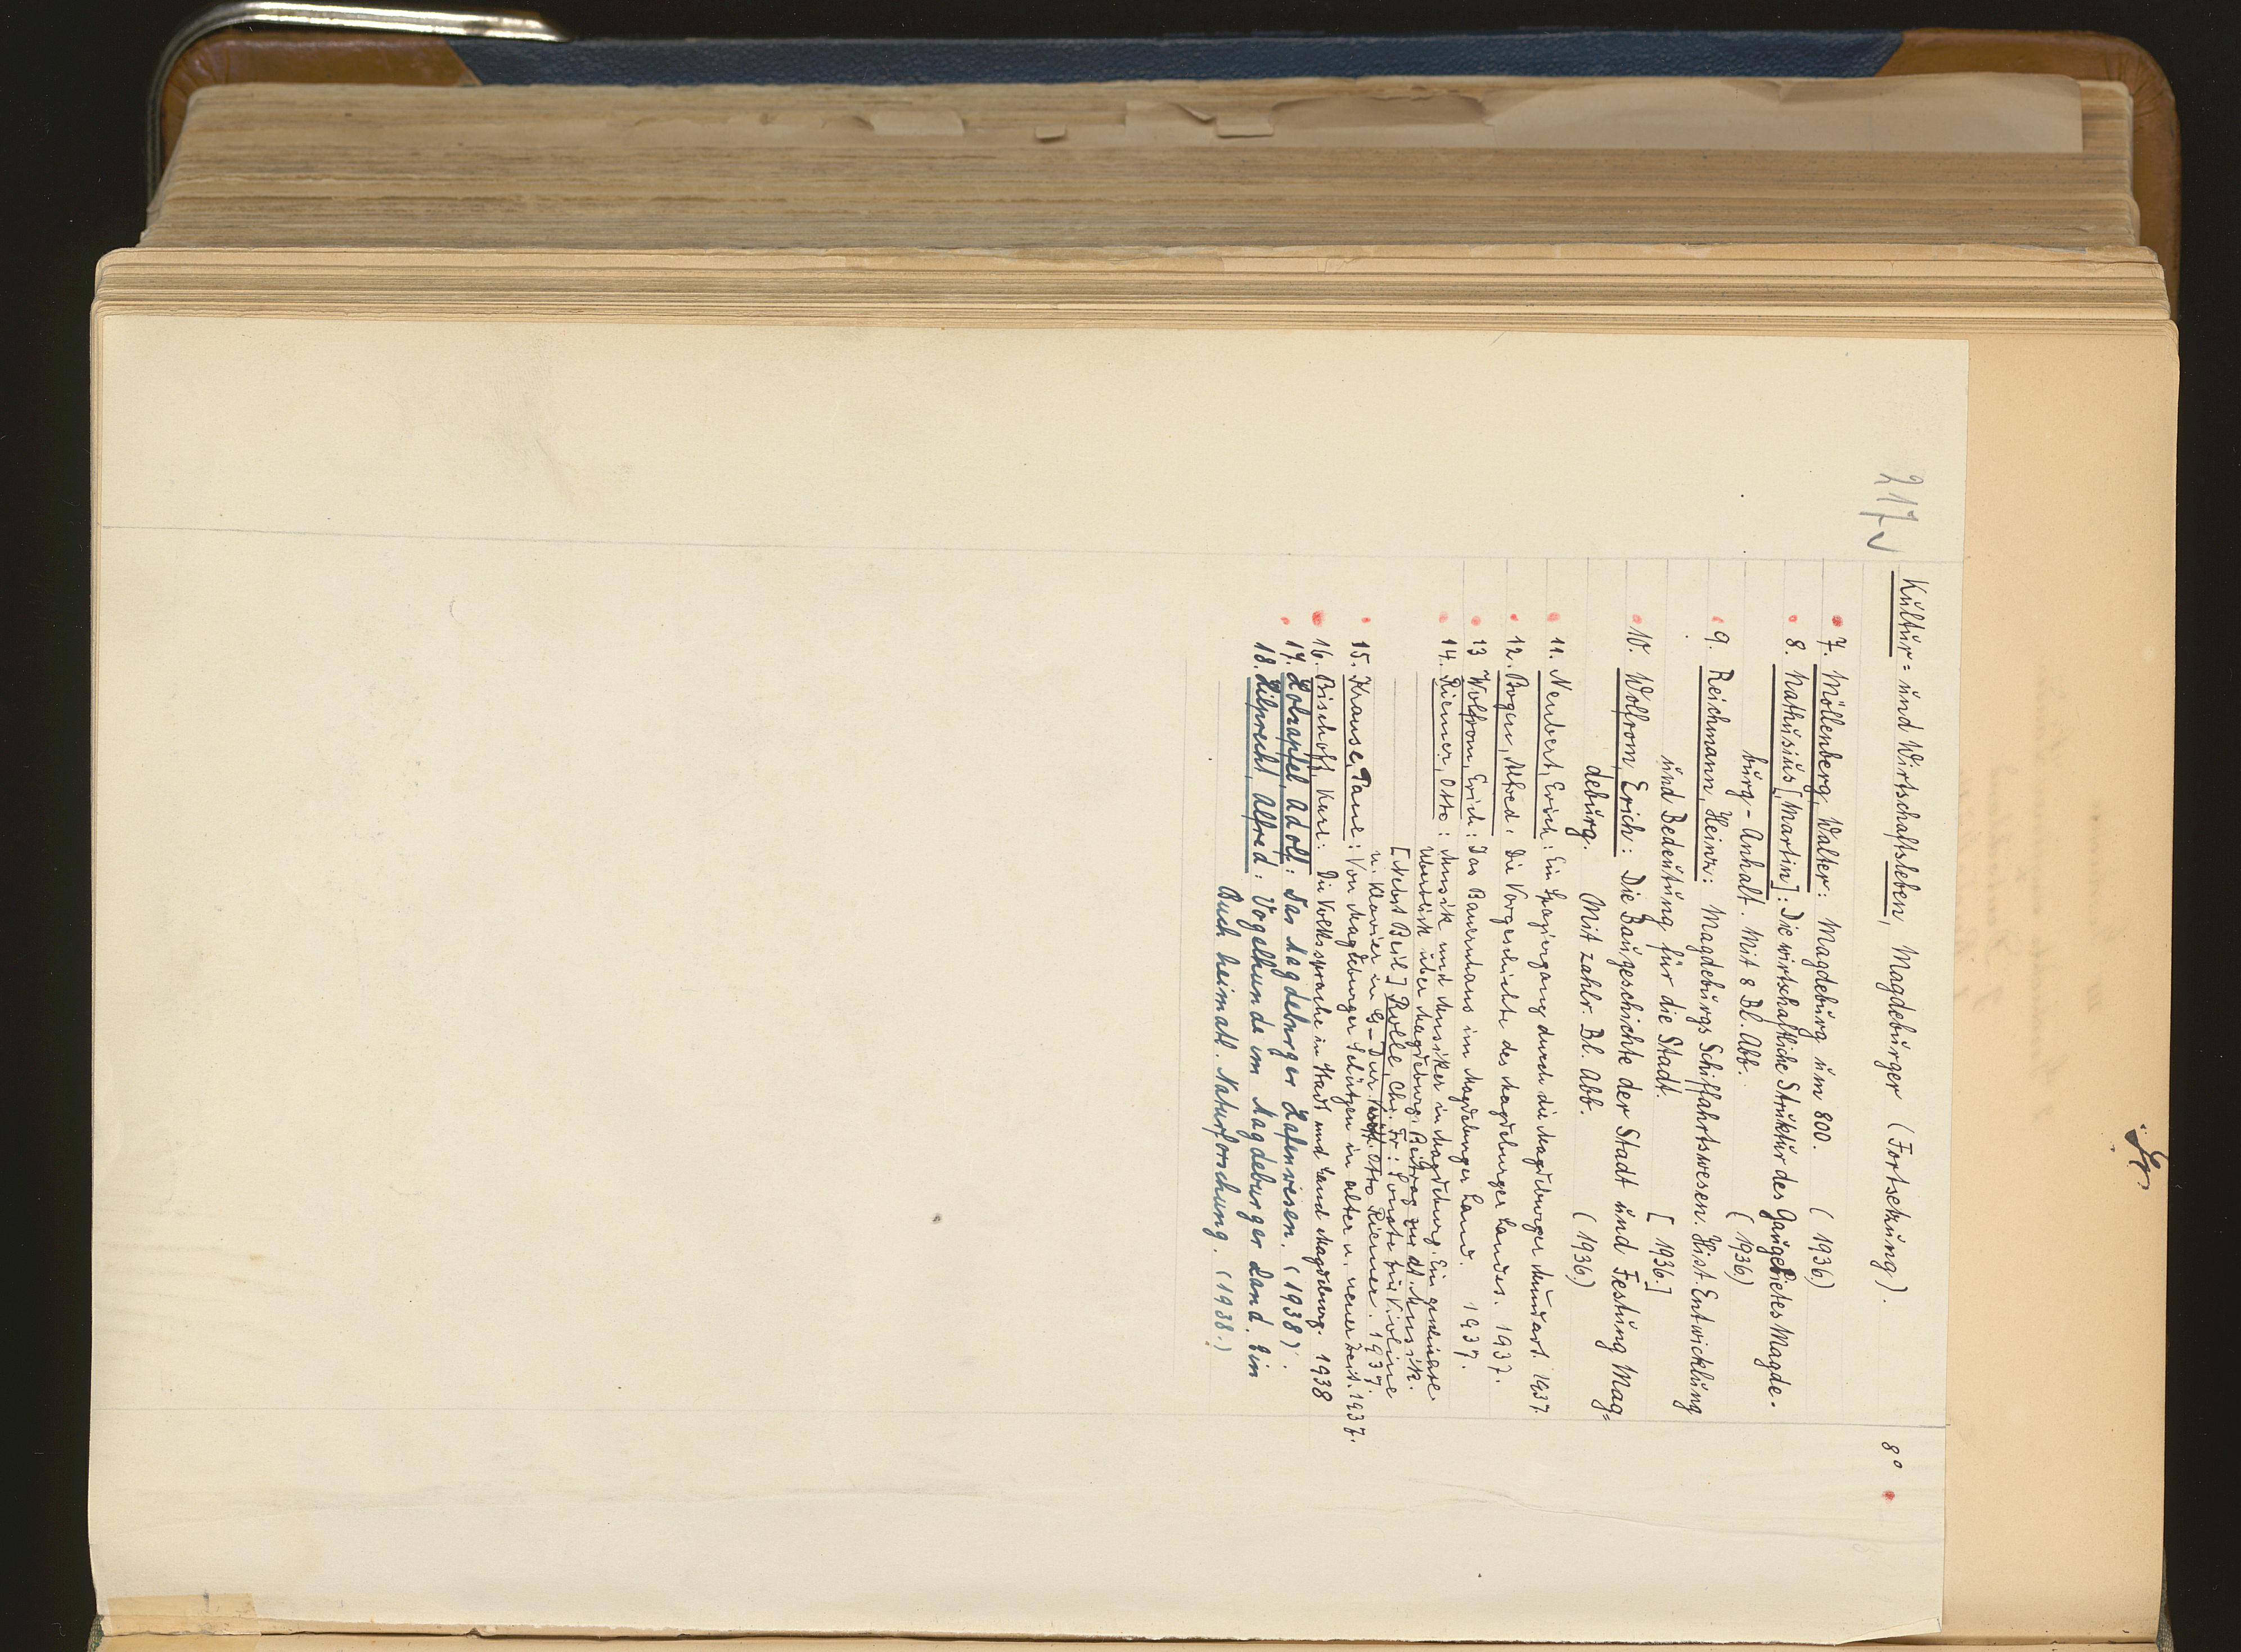 217v
Kultur= und Wirtschaftsleben, Magdeburger (Fortsetzung). 8°
7. Möllenberg, Walter: Magdeburg um 800. (1936)
8. Nathusius [, Martin]: Die wirtschaftliche Struktur des Gaugebietes Magde-
burg-Anhalt. Mit 8 Bl. Abb. (1936)
9. Reichmann, Heinz: Magdeburgs Schiffahrtswesen. Hist. Entwicklung
und Bedeutung für die Stadt. [1936.]
10. Wolfrom, Erich: Die Baugeschichte der Stadt und Festung Mag=
deburg. Mit zahlr. Bl. Abb. (1936)
11. Neubert, Erich: Ein Spaziergang durch die Magdeburger Mundart. 1937.
12. Bogen, Alfred: Die Vorgeschichte des Magdeburger Landes. 1937.
13 Wolfrom, Erich: Das Bauernhaus im Magdeburger Land. 1937.
14. Riemer, Otto: Musik und Musiker in Magdeburg. Ein geschichtl.
Überblick über Magdeburgs Beitrag zur dt. Musik.
[Nebst Beil.] Rolle, Chr. Fr.: Sonate für Violine
u. Klavier in G-Dur Otto Riemer. 1937.
15. Krause, Paul: Von Magdeburger Schützen in alter u. neuer Zeit. 1937.
16. Bischoff, Karl: Die Volkssprache in Stadt und Land Magdeburg. 1938
17. Holzapfel, Adolf: Das Magdeburger Hafenwesen. (1938).
18. Hilprecht, Alfred: Vogelkunde im Magdeburger Land. Ein
Buch heimatl. Naturforschung. (1938.)